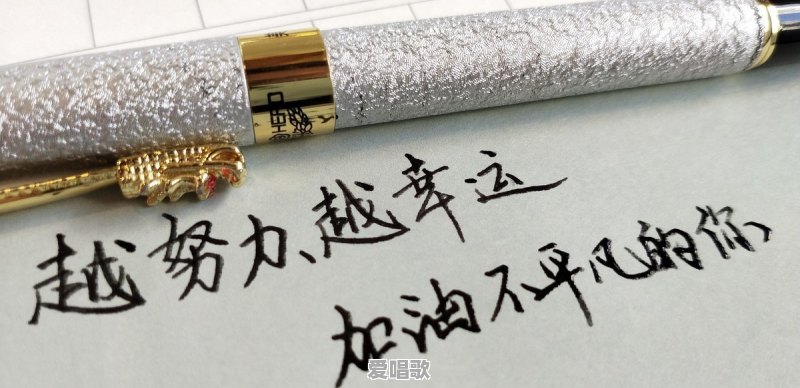 HERO
越努力、越幸运
加油不平凡的你、
爱唱歌